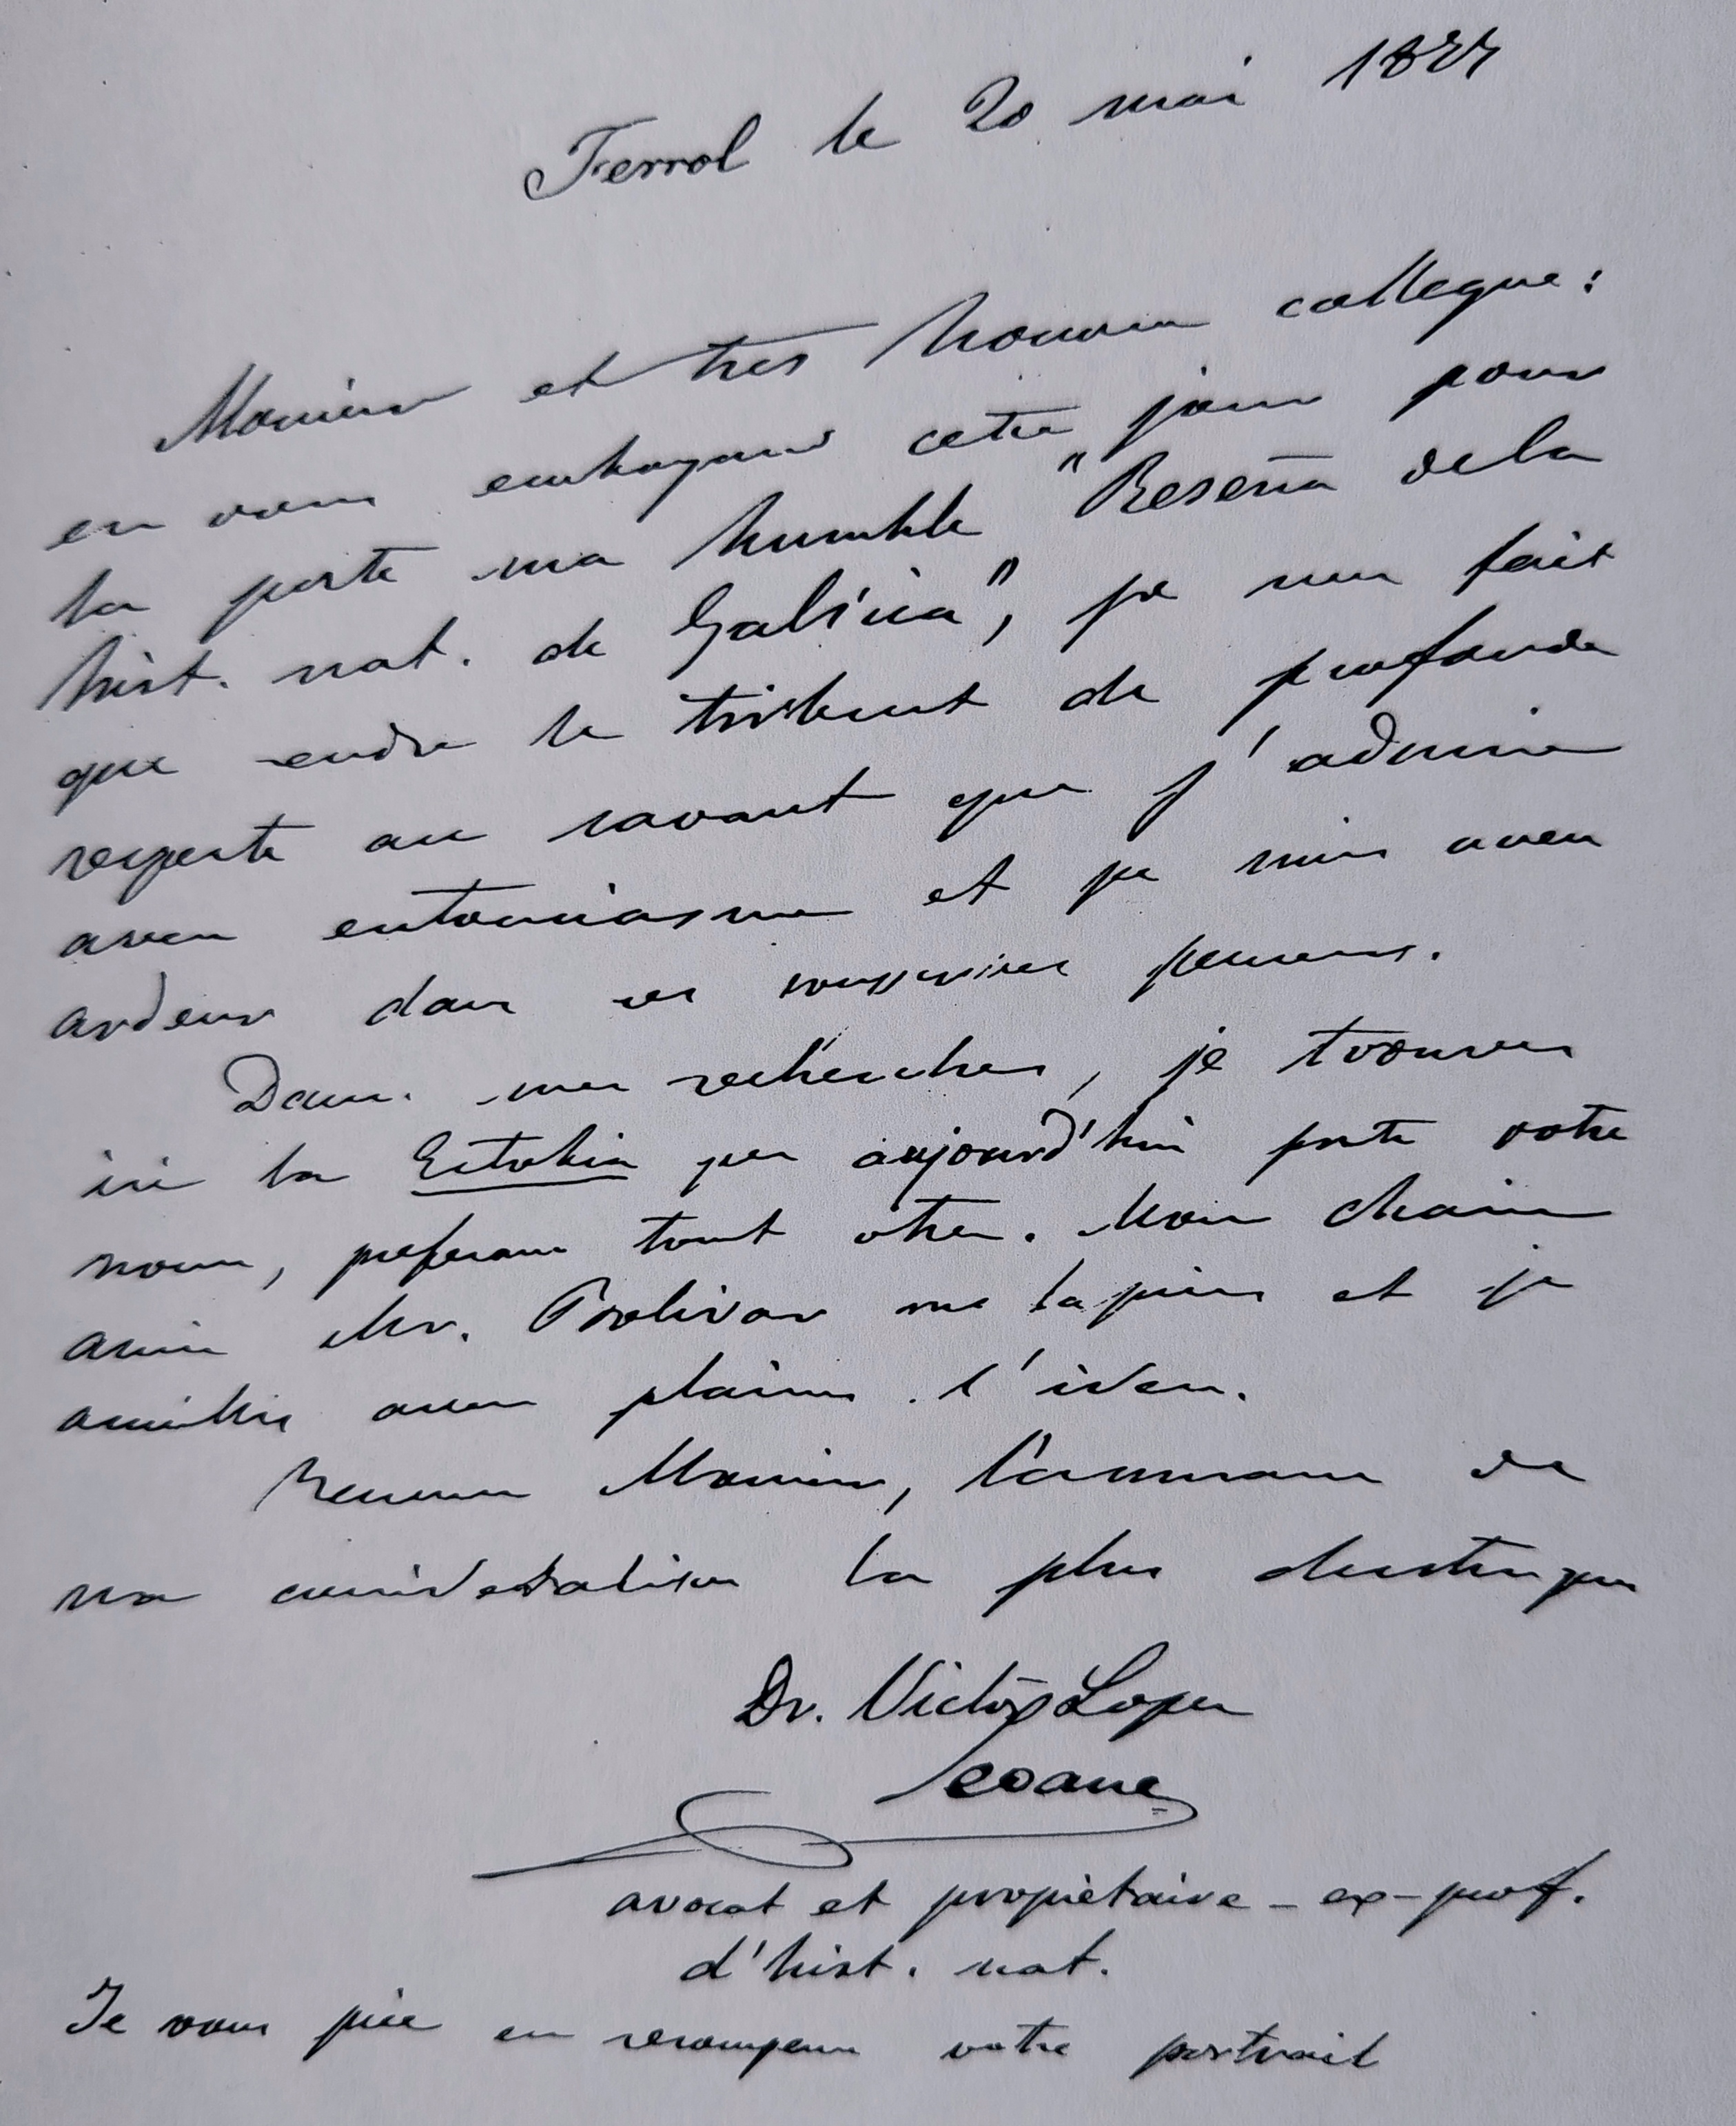 Ferrol le 20 mai 1877
Monsieur et tres honoré collegue:
en vous emboyant cette jour pour
la poste ma humble "Reseña de la
hist. nat. de Galicia", je ne fait
que rendre le tribut de profonde
respecte au savant que j'admire
avec entousiasme et je suis avec
ardeur dans ses
Dans mes recherches, je trouver
ici la que aujourd'hui porte votre
nom, preferant tout otre. Mon chair
ami Mr. Bolivar me la prier et je
avec plaisir l'idea.
Recevez Monsieur, l'assurance de
ma consideration la plus distingue
Dr. Victor Lopez
Seoane
avocat et propiètaire - ex-prof.
d'hist. nat.
Je vous prie en recompense votre portrait